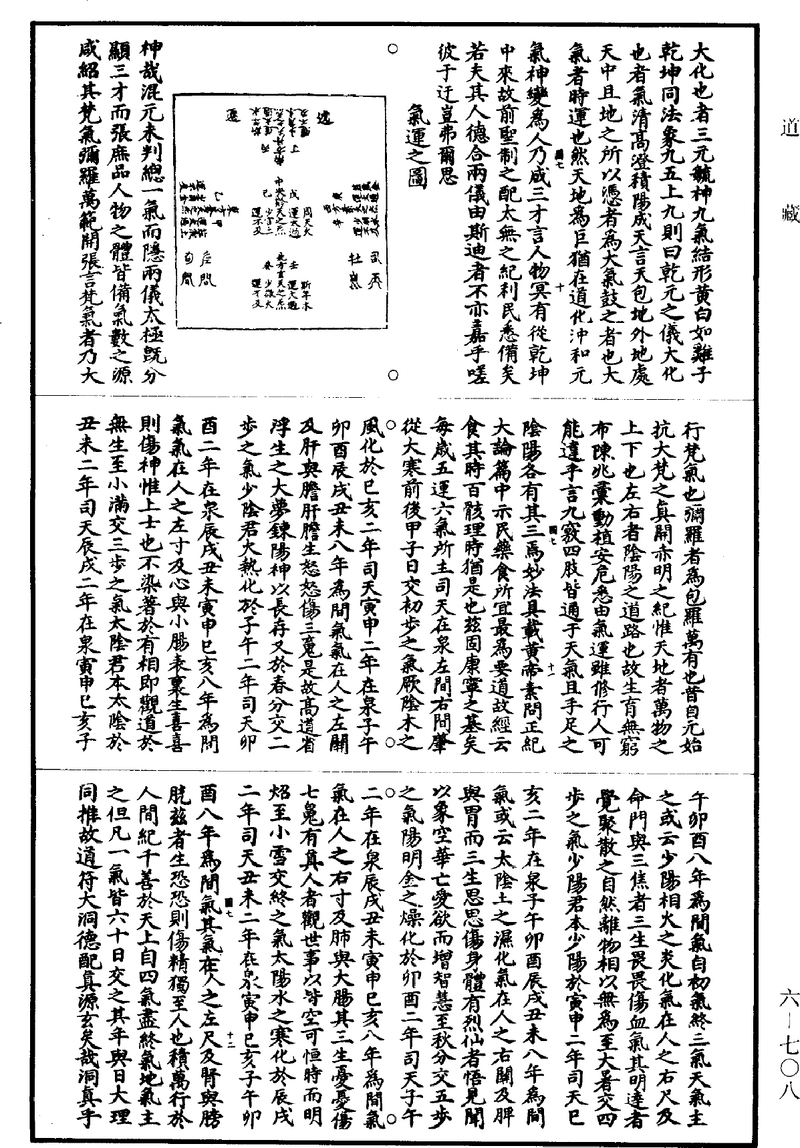 大化也者三元毓神九氣結形黃白如雞子
乾坤同法象九五上九則曰乾元之儀大化
也者氣清高澄積陽成天言天包地外地處
天中且地之所以憑者為大氣鼓之者也大
氣者時運也然天地為巨猶在道化沖和元
圖七
十
氣神變為人乃咸三才言人物冥有從乾坤
中來故前聖制之配太無之紀利民悉備矣
若夫其人德合兩儀由斯迪者不亦嘉乎嗟
彼于迂豈弗爾思
氣運之圖
神哉混元未判總一氣而隱兩儀太極旣分
顯三才而張庶品人物之體皆備氣數之源
咸紹其梵氣彌羅萬範開張言梵氣者乃大
行梵氣也彌羅者為包羅萬有也昔自元始
抗大梵之真開赤明之紀惟天地者萬物之
上下也左右者陰陽之道路也故生育無窮
布陳兆彙動植安危悉由氣運雖修行人可
能違乎言九竅四肢皆通于天氣且手足之
圖七
十一
陰陽各有其三焉妙法具載黃帝素問正紀
大論篇中示民藥食所宜最為要道故經云
食其時百骸理時猶是也茲固康寧之基矣
每歲五運六氣所主司天在泉左間右間肇
從大寒前後甲子日交初步之氣厥陰木之
風化於巳亥二年司天寅申二年在泉子午
卯酉辰戌丑未八年為間氣氣在人之左關
及肝與膽肝膽生怒怒傷三䰟是故高道省
浮生之大夢鍊陽神以長存又於春分交二
步之氣少陰君火熱化於子午二年司天卯
酉二年在泉辰戌丑未寅申巳亥八年為間
氣氣在人之左寸及心與小腸表裏生喜喜
則傷神惟上士也不染著於有相即觀道於
無生至小滿交三步之氣太陰君本太陰於
丑未二年司天辰戌二年在泉寅申巳亥子
午卯酉八年為間氣自初氣終三氣天氣主
之或云少陽相火之炎化氣在人之右尺及
命門與三焦者三生畏畏傷血氣其明達者
覺聚散之自然離物相以無為至大暑交四
步之氣少陽君本少陽於寅申二年司天巳
亥二年在泉子午卯酉辰戌丑未八年為間
氣或云太陰土之濕化氣在人之右關及脾
與胃而三生思思傷身體有烈仙者悟見聞
以象空華亡愛欲而增智慧至秋分交五步
之氣陽明金之燥化於卯酉二年司天子午
二年在泉辰戌丑未寅申巳亥八年為間氣
氣在人之右寸及肺與大腸其三生憂憂傷
七䰟有真人者觀世事以皆空可恒時而明
炤至小雪交終之氣太陽水之寒化於辰戌
二年司天丑未二年在泉寅申巳亥子午卯
圖七
十二
酉八年為間氣其氣在人之左尺及腎與膀
胱茲者生恐恐則傷精獨至人也積萬行於
人間紀千善於天上自四氣盡終氣地氣主
之但凡一氣皆六十日交之其年與日大理
同推故道符大洞德配真源玄矣哉洞真乎
道藏
六–七〇八